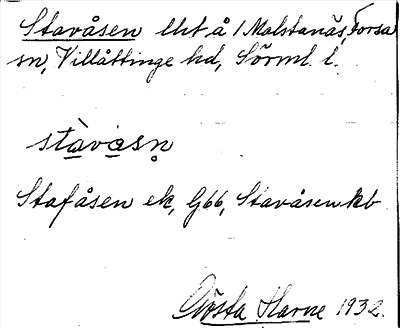 Stavåsen lht å 1 Malstanäs, Forsa
sn, Villåttinge hd, Sörml. l.
stavåsn
Stafåsen ek, G66, Stavåsen kb
Gösta Harne 1932.